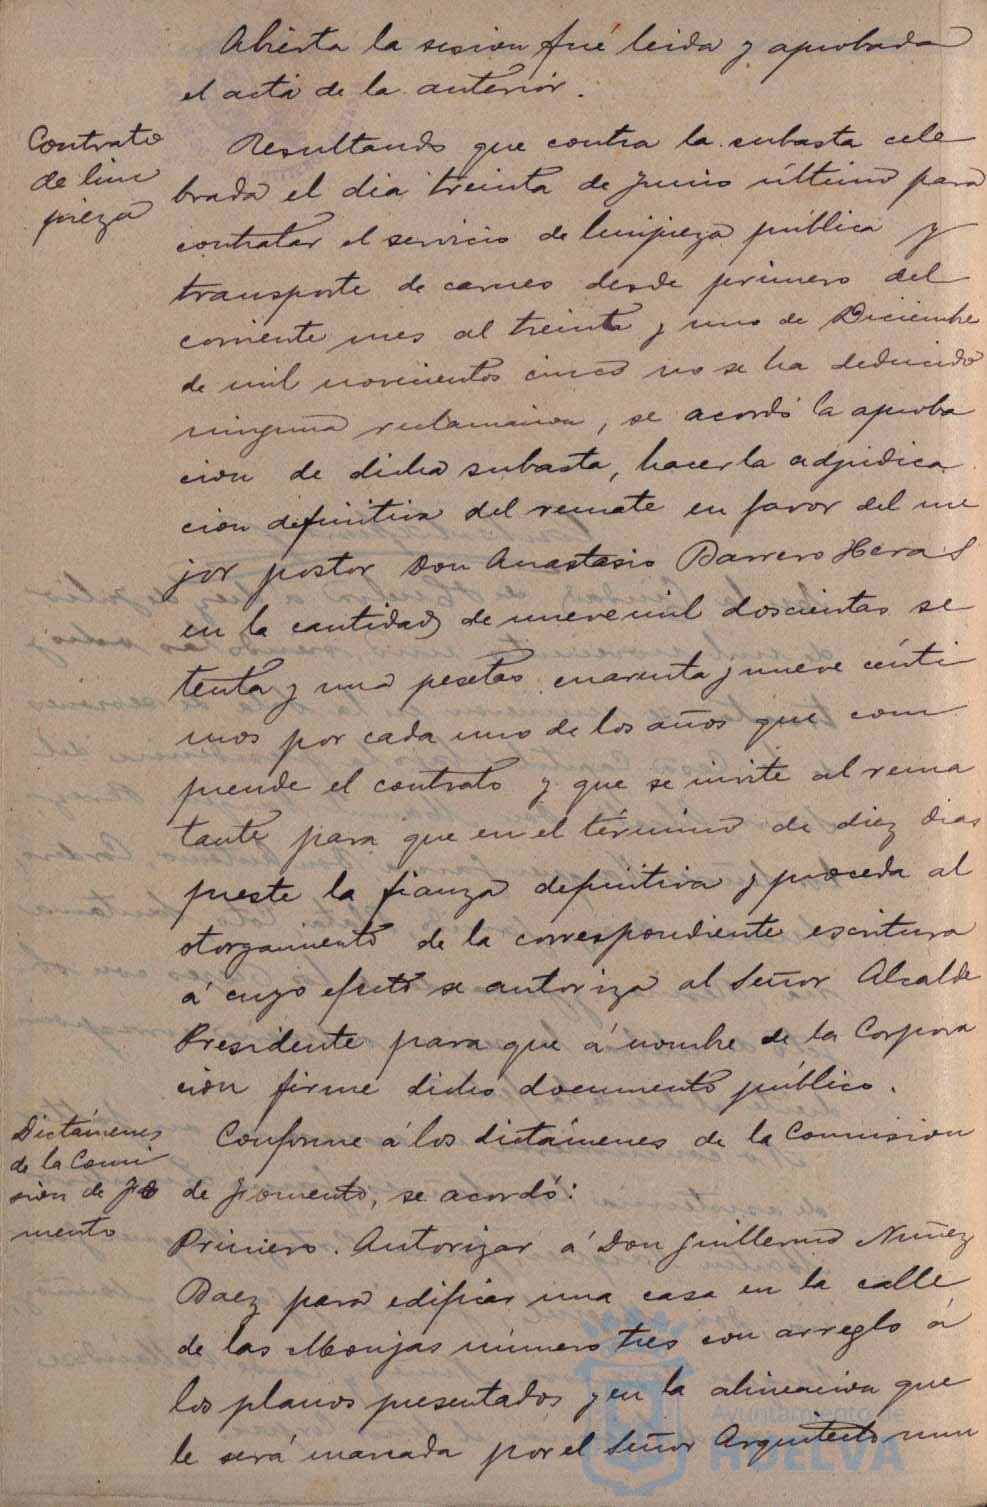 Abierta la sesion fué leida y aprobada
el acta de la anterior.
Contrato
de lim
pieza
Resultando que contra la subasta cele
brada el dia treinta de Junio último para
contratar el servicio de limpieza pública y
transporte de carnes desde primero del
corriente mes al treinta y uno de Diciembre
de mil novecientos cinco no se ha deducido
ninguna reclamacion, se acordó la aproba
cion de dicha subasta, hacer la adjudica
cion definitiva del remate en favor del me
jor postor Don Anastasio Barrero Heras
en la cantidad de nueve mil doscientas se
tenta y una pesetas cuarenta y nueve cénti
mos por cada uno de los años que com
prende el contrato y que se invite al rema
tante para que en el término de diez dias
preste la fianza definitiva y proceda al
otorgamiento de la correspondiente escritura
á cuyo efecto se autoriza al Señor Alcalde
Presidente para que á nombre de la Corpora
cion firme dicho documento público.
Dictámenes
de la Comi
sion de Fo
mento
Conforme á los dictámenes de la Comision
de Fomento, se acordó:
Primero. Autorizar á Don Guillermo Nuñez
Baez para edificar una casa en la calle
de las Monjas número tres con arreglo á
los planos presentados y en la alineacion que
le será marcada por el Señor Arquitecto mun
Ayuntamiento de
HUELVA